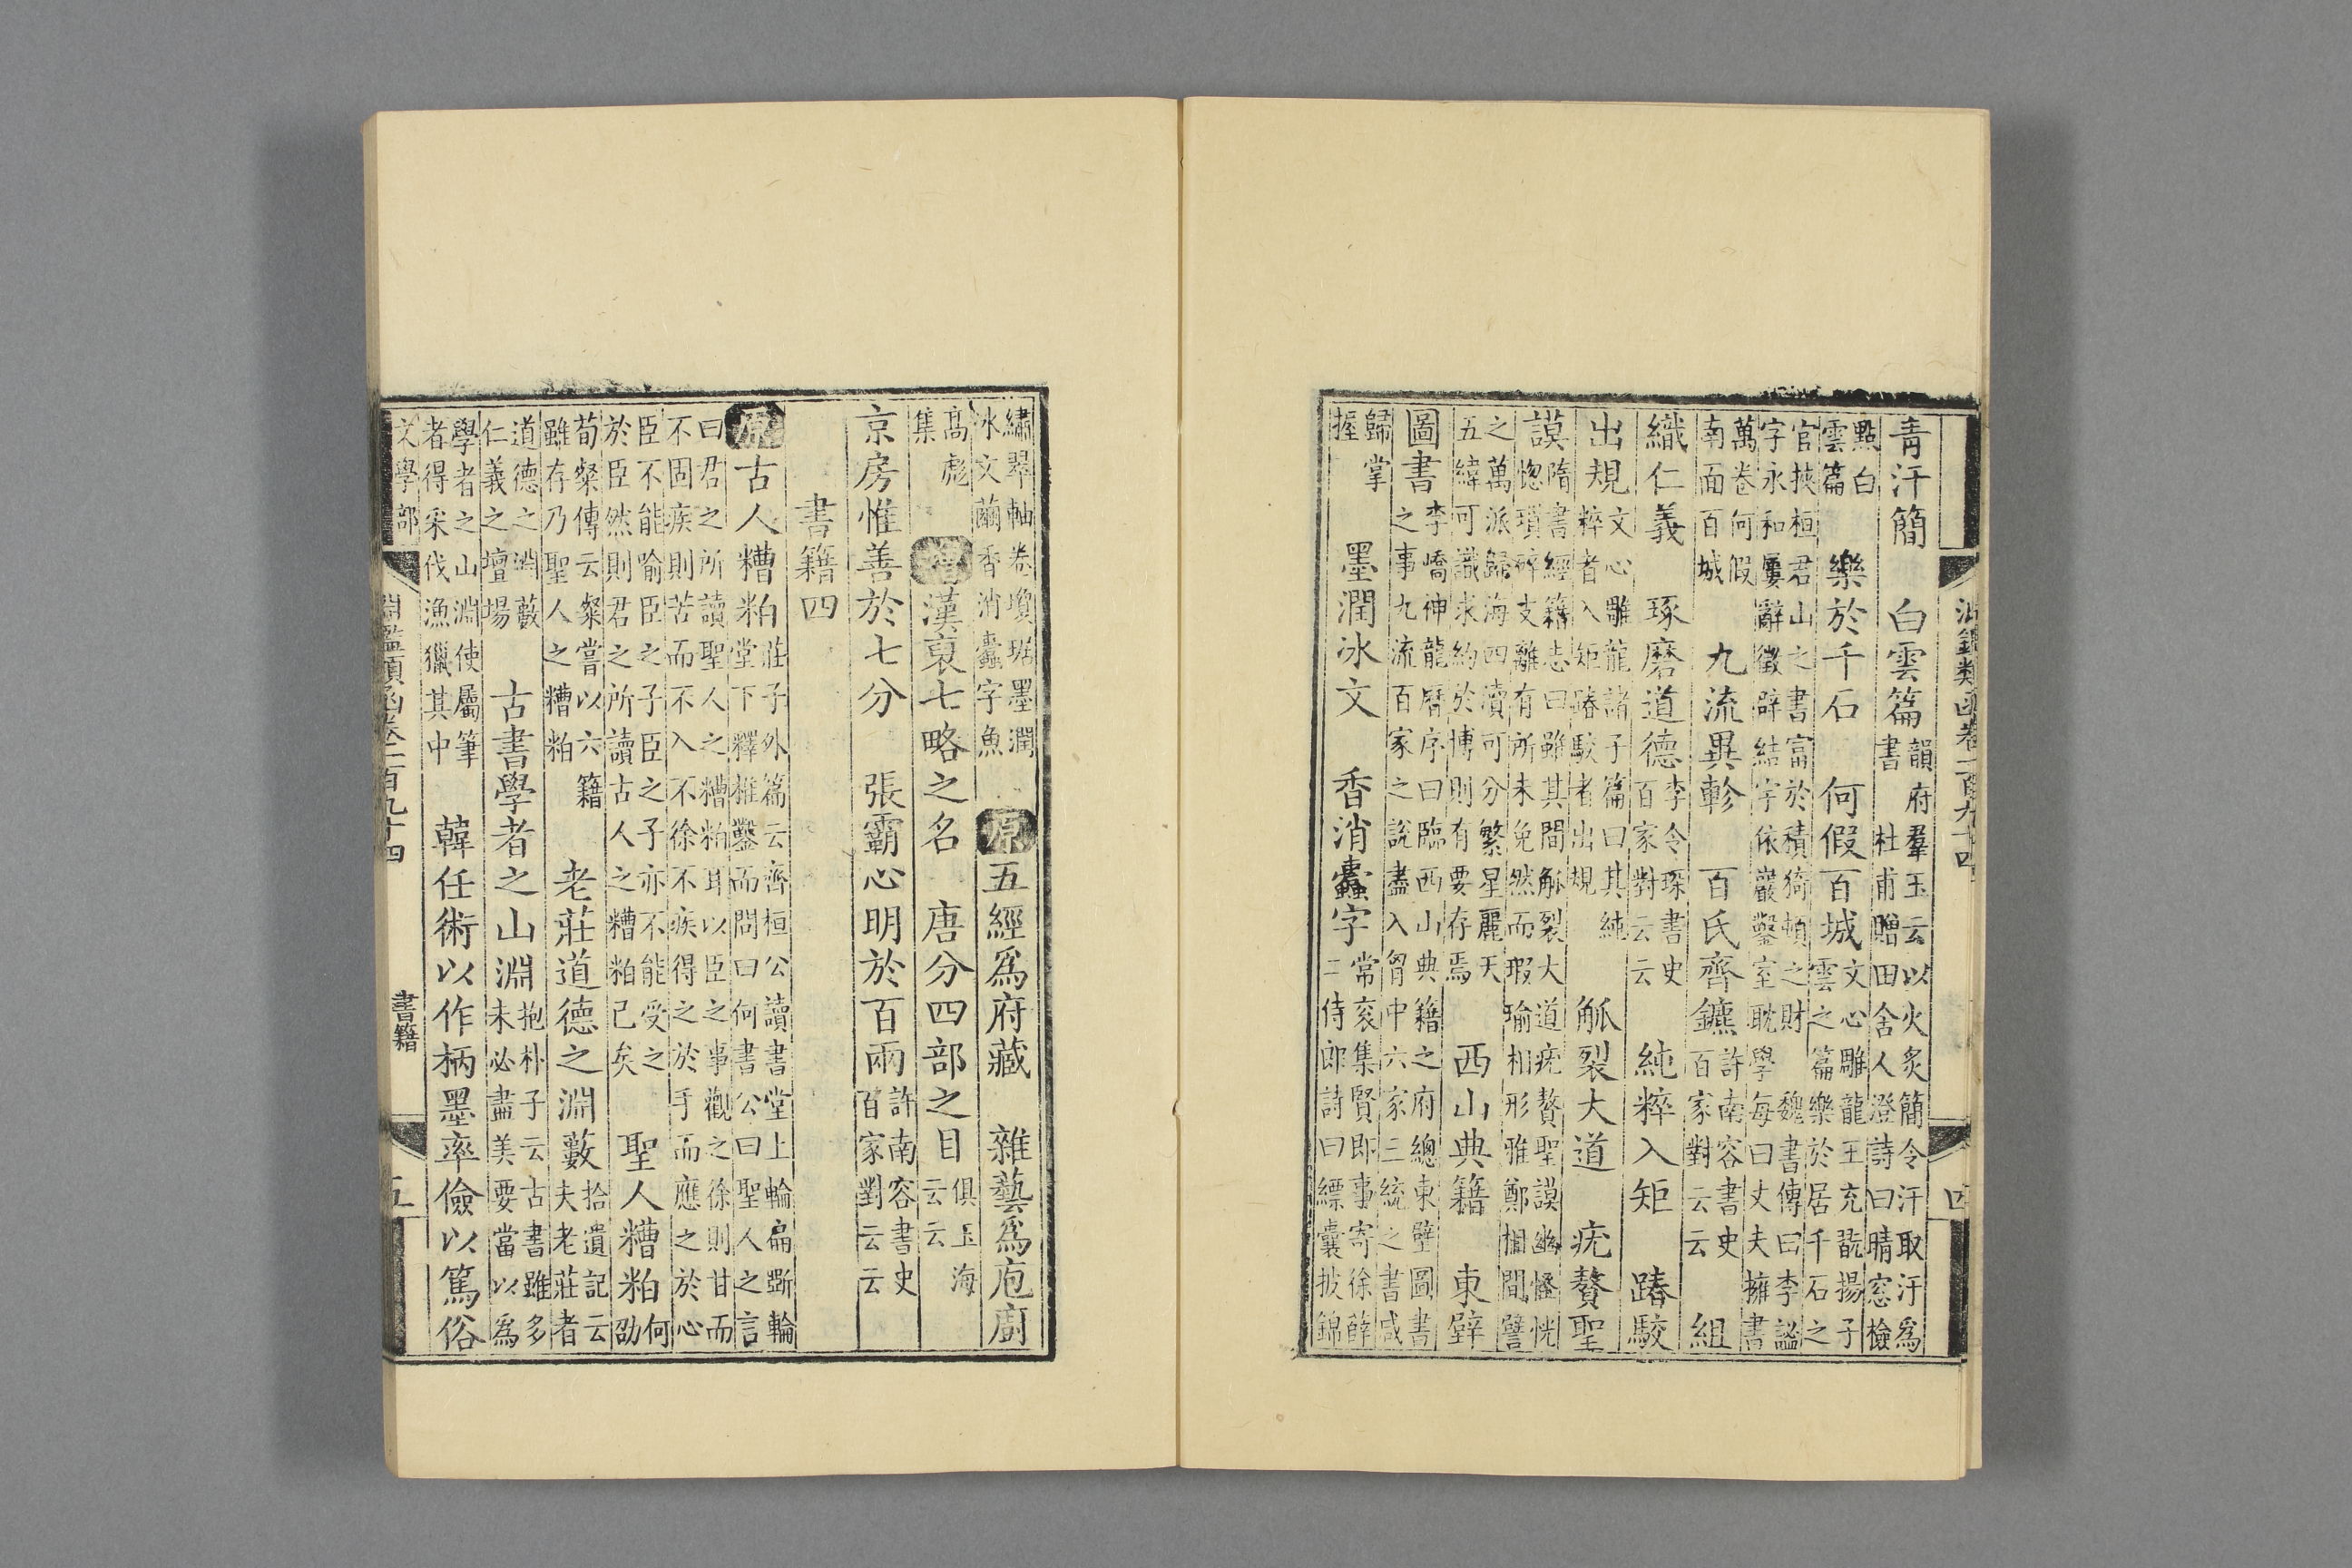 淵鑑類函卷一百九十四 四
青汗簡 白雲篇 韻府羣玉云以火炙簡令汗取汗爲
書 杜甫贈田舍人澄詩曰晴窓檢
點白
雲篇 樂於千石 何假百城 文心雕龍王充翫揚子
雲之篇樂於居千石之
官挾桓君山之書富於積猗頓之財 魏書傳曰李謐
字永和屢辭徵辟結宇依巖鑿室耽學每曰丈夫擁書
萬卷何假
南面百城 九流異軫 百氏齊鑣 許南容書史
百家對云云 組
織仁義 琢磨道德 李令琛書史
百家對云云 純粹入矩 踳駮
出規 文心雕龍諸子篇曰其純
粹者入矩踳駮者出規 觚裂大道 疣贅聖
謨 隋書經籍志曰雖其間觚裂大道疣贅聖謨幽怪恍
惚瑣碎支離有所未免然而瑕瑜相形雅鄭相間譬
之萬派歸海四瀆可分繁星麗天
五緯可識求約於博則有要存焉 西山典籍 東壁
圖書 李嶠神龍曆序曰臨西山典籍之府總東壁圖書
之事九流百家之說盡入胷中六家三統之書咸
歸掌
握 墨潤冰文 香消蠹字 常袞集賢即事寄徐薛
二侍郎詩曰縹囊披錦
繡翠軸卷瓊琚墨潤
冰文繭香消蠹字魚 原 五經爲府藏 雜藝爲庖廚
高彪
集 增 漢裒七略之名 唐分四部之目 俱玉海
云云
京房惟善於七分 張霸心明於百兩 許南容書史
百家對云云
書籍四
原 古人糟粕 莊子外篇云齊桓公讀書堂上輪扁斲輪
堂下釋椎鑿而問曰何書公曰聖人之言
曰君之所讀聖人之糟粕耳以臣之事觀之徐則甘而
不固疾則苦而不入不徐不疾得之於手而應之於心
臣不能喻臣之子臣之子亦不能受之
於臣然則君之所讀古人之糟粕已矣 聖人糟粕 何
劭
荀粲傳云粲嘗以六籍
雖存乃聖人之糟粕 老莊道德之淵藪 拾遺記云
夫老莊者
道德之淵藪
仁義之壇場 古書學者之山淵 抱朴子云古書雖多
未必盡美要當以爲
學者之山淵使屬筆
者得采伐漁獵其中 韓任術以作柄墨率儉以篤俗
文學部 淵鑑類函卷一百九十四 書籍 五